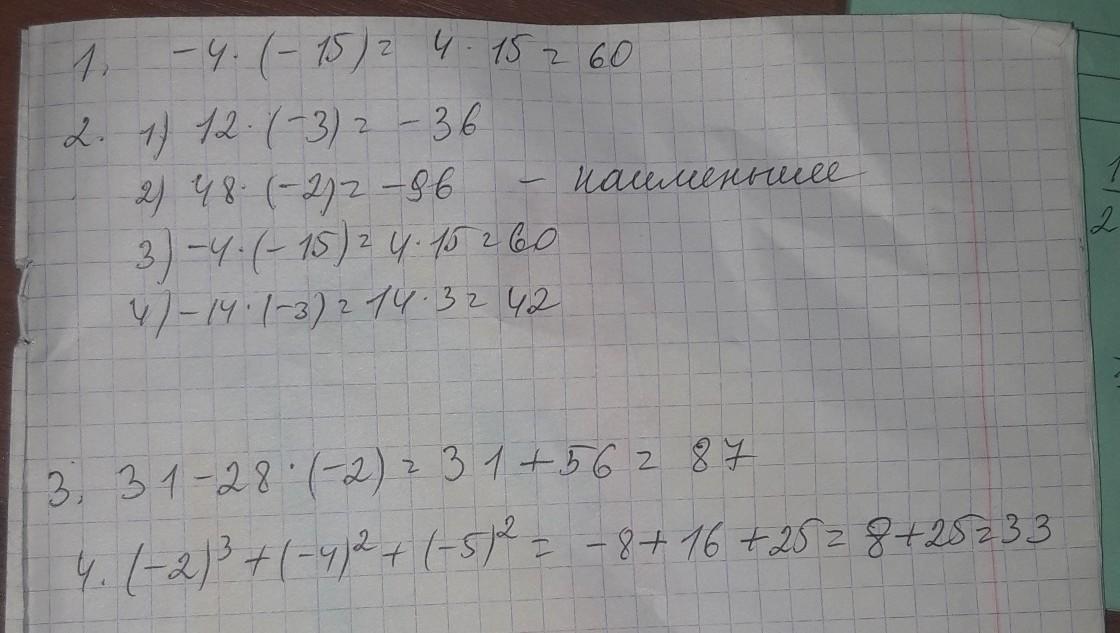 1. -4·(-15)= 4·15=60
2. 1) 12·(-3)= -36
2) 48·(-2)= -96 - наименьшее
3) -4·(-15)=4·15=60
4) -14·(-3)=14·3=42
3. 31-28·(-2)=31+56=87
4. (-2)³+(-4)²+(-5)²= -8+16+25=8+25=33
1
2